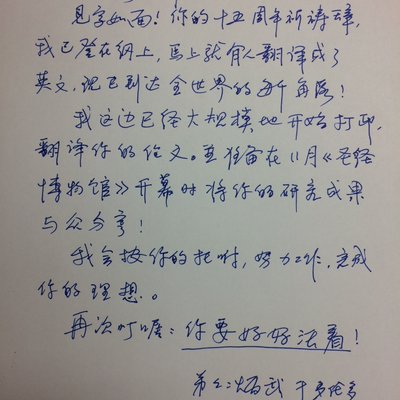 见字如面！你的十五周年祈祷辞，
我已登在网上，马上就有人翻译成了
英文，说已到达全世界的每个角落！
我这边已经大规模地开始打印，
翻译你的论文。並准备在11月《圣经
博物馆》开幕时将你的研究成果
与众分享！
我会按你的托咐，努力工作，完成
你的理想。
再次叮嘱：你要好好活着！
弟
于多伦多